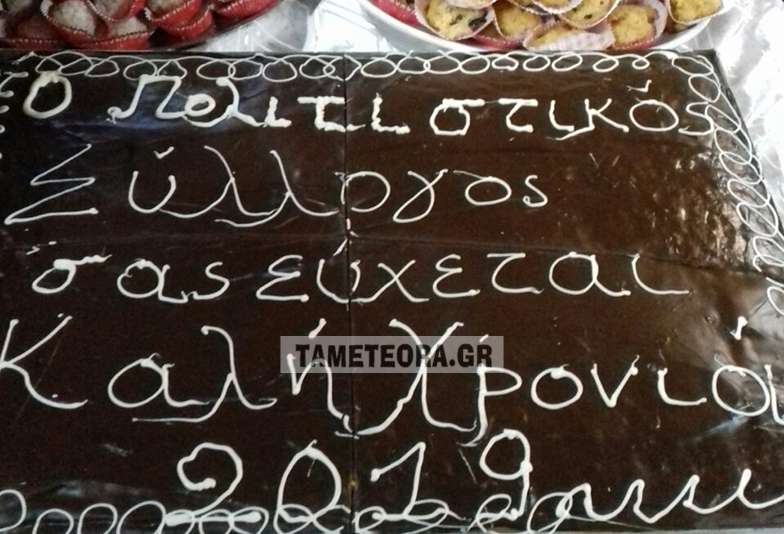 Ο Πολιτιστικός
Σύλλογος
σας εύχεται
Καλή Χρονιά
TAMETEORA.GR
2019